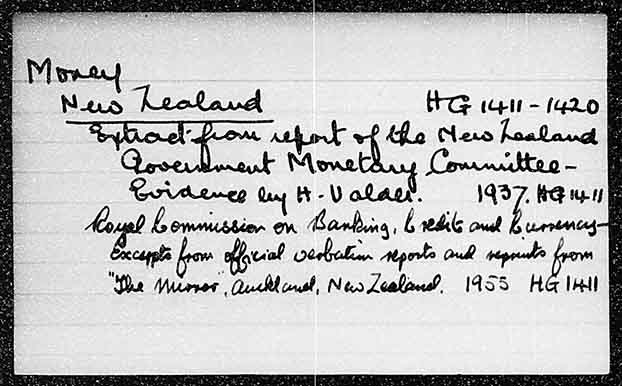 Money
New Zealand HG 1411-1420
Extract from report of the New Zealand
Government Monetary Committee -
Evidence by H. Valder. 1937. HG 1411
Royal Commission on Banking, Credit and Currency -
Excerpts from official verbatim reports and reprints from
"The Mirror", Auckland, New Zealand. 1955 HG 1411